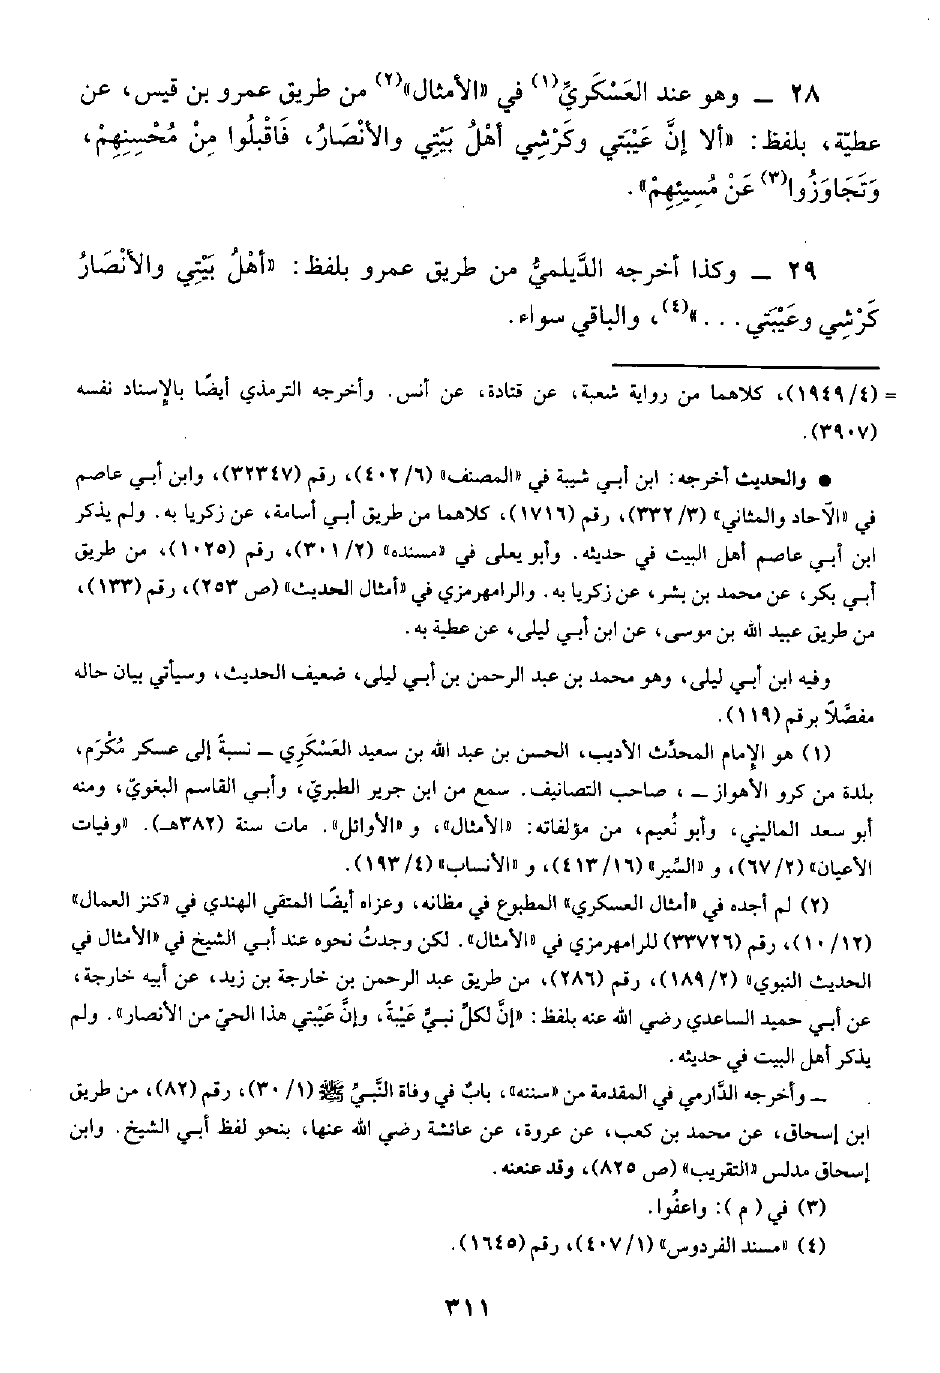 ٢٨ ــ وهو عند العَسْكَريِّ(١) في «الأمثال»(٢) من طريق عمرو بن قيس، عن
عطيّة، بلفظ: «ألا إنَّ عَيْبَتي وكَرْشِي أهْلُ بَيْتِي والأنْصَارُ، فَاقْبلُوا مِنْ مُحْسِنِهِمْ،
وَتَجَاوَزُوا(٣) عَنْ مُسِيئِهِمْ».
٢٩ ــ وكذا أخرجه الدَّيلميُّ من طريق عمرو بلفظ: «أهْلُ بَيْتِي والأنْصَارُ
كَرْشِي وعَيْبَتي. . . »(٤)، والباقي سواء.
= (١٩٤٩/٤)، كلاهما من رواية شعبة، عن قتادة، عن أنس. وأخرجه الترمذي أيضًا بالإسناد نفسه
(٣٩٠٧).
● والحديث أخرجه: ابن أبي شيبة في «المصنف» (٤٠٢/٦)، رقم (٣٢٣٤٧)، وابن أبي عاصم
في «الآحاد والمثاني» (٣٣٢/٣)، رقم (١٧١٦)، كلاهما من طريق أبي أسامة، عن زكريا به. ولم يذكر
ابن أبي عاصم أهل البيت في حديثه. وأبو يعلى في «مسنده» (٣٠١/٢)، رقم (١٠٢٥)، من طريق
أبي بكر، عن محمد بن بشر، عن زكريا به. والرامهرمزي في «أمثال الحديث» (ص ٢٥٣)، رقم (١٣٣)،
من طريق عبيد الله بن موسى، عن ابن أبي ليلى، عن عطية به.
وفيه ابن أبي ليلى، وهو محمد بن عبد الرحمن بن أبي ليلى، ضعيف الحديث، وسيأتي بيان حاله
مفصَّلاً برقم (١١٩).
(١) هو الإمام المحدِّث الأديب، الحسن بن عبد الله بن سعيد العَسْكَرِي ــ نسبةً إلى عسكر مُكْرَم،
بلدة من كرو الأهواز ــ ، صاحب التصانيف. سمع من ابن جرير الطبري، وأبي القاسم البغويّ، ومنه
أبو سعد الماليني، وأبو نُعيم، من مؤلفاته: «الأمثال»، و «الأوائل». مات سنة (٣٨٢هـ). «وفيات
الأعيان» (٦٧/٢)، و «السِّير» (٤١٣/١٦)، و «الأنساب» (١٩٣/٤).
(٢) لم أجده في «أمثال العسكري» المطبوع في مظانه، وعزاه أيضًا المتقي الهندي في «كنز العمال»
(١٠/١٢)، رقم (٣٣٧٢٦) للرامهرمزي في «الأمثال». لكن وجدتُ نحوه عند أبي الشيخ في «الأمثال في
الحديث النبوي» (١٨٩/٢)، رقم (٢٨٦)، من طريق عبد الرحمن بن خارجة بن زيد، عن أبيه خارجة،
عن أبي حميد الساعدي رضي الله عنه بلفظ: «إنَّ لكلِّ نبيٍّ عَيْبَة، وإنَّ عَيْبَتي هذا الحيّ من الأنصار». ولم
يذكر أهل البيت في حديثه.
ــ وأخرجه الدَّارمي في المقدمة من «سننه»، بابٌ في وفاة النَّبيِّ ﷺ (٣٠/١)، رقم (٨٢)، من طريق
ابن إسحاق، عن محمد بن كعب، عن عروة، عن عائشة رضي الله عنها، بنحو لفظ أبي الشيخ. وابن
إسحاق مدلس «التقريب» (ص ٨٢٥)، وقد عنعنه.
(٣) في ( م ): واعفُوا.
(٤) «مسند الفردوس» (٤٠٧/١)، رقم (١٦٤٥).
٣١١